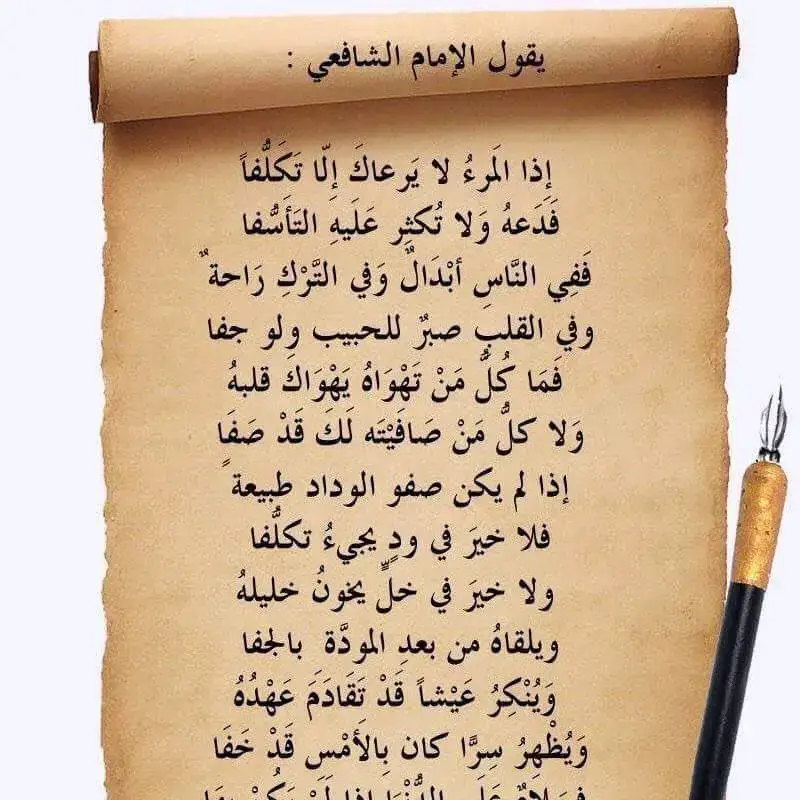 يقول الإمام الشافعي :
إذا المَرءُ لا يَرعاكَ إلّا تَكَلُّفاً
فَدَعهُ وَلا تُكثِر عَلَيهِ التَأَسُّفا
فَفِي النَّاسِ أبْدَالٌ وَفي التَّرْكِ رَاحةٌ
وفي القلبِ صبرٌ للحبيب ولو جفا
فَمَا كُلُّ مَنْ تَهْوَاهُ يَهْوَاكَ قلبهُ
وَلا كلُّ مَنْ صَافَيْتَه لَكَ قَدْ صَفَا
إذا لم يكن صفو الوداد طبيعةً
فلا خيرَ في ودٍ يجيءُ تكلُّفا
ولا خيرَ في خلٍّ يخونُ خليلهُ
ويلقاهُ من بعدِ المودَّة بالجفا
وَيُنْكِرُ عَيْشاً قَدْ تَقَادَمَ عَهْدُهُ
وَيُظْهِرُ سِرًّا كان بِالأمْسِ قَدْ خَفَا